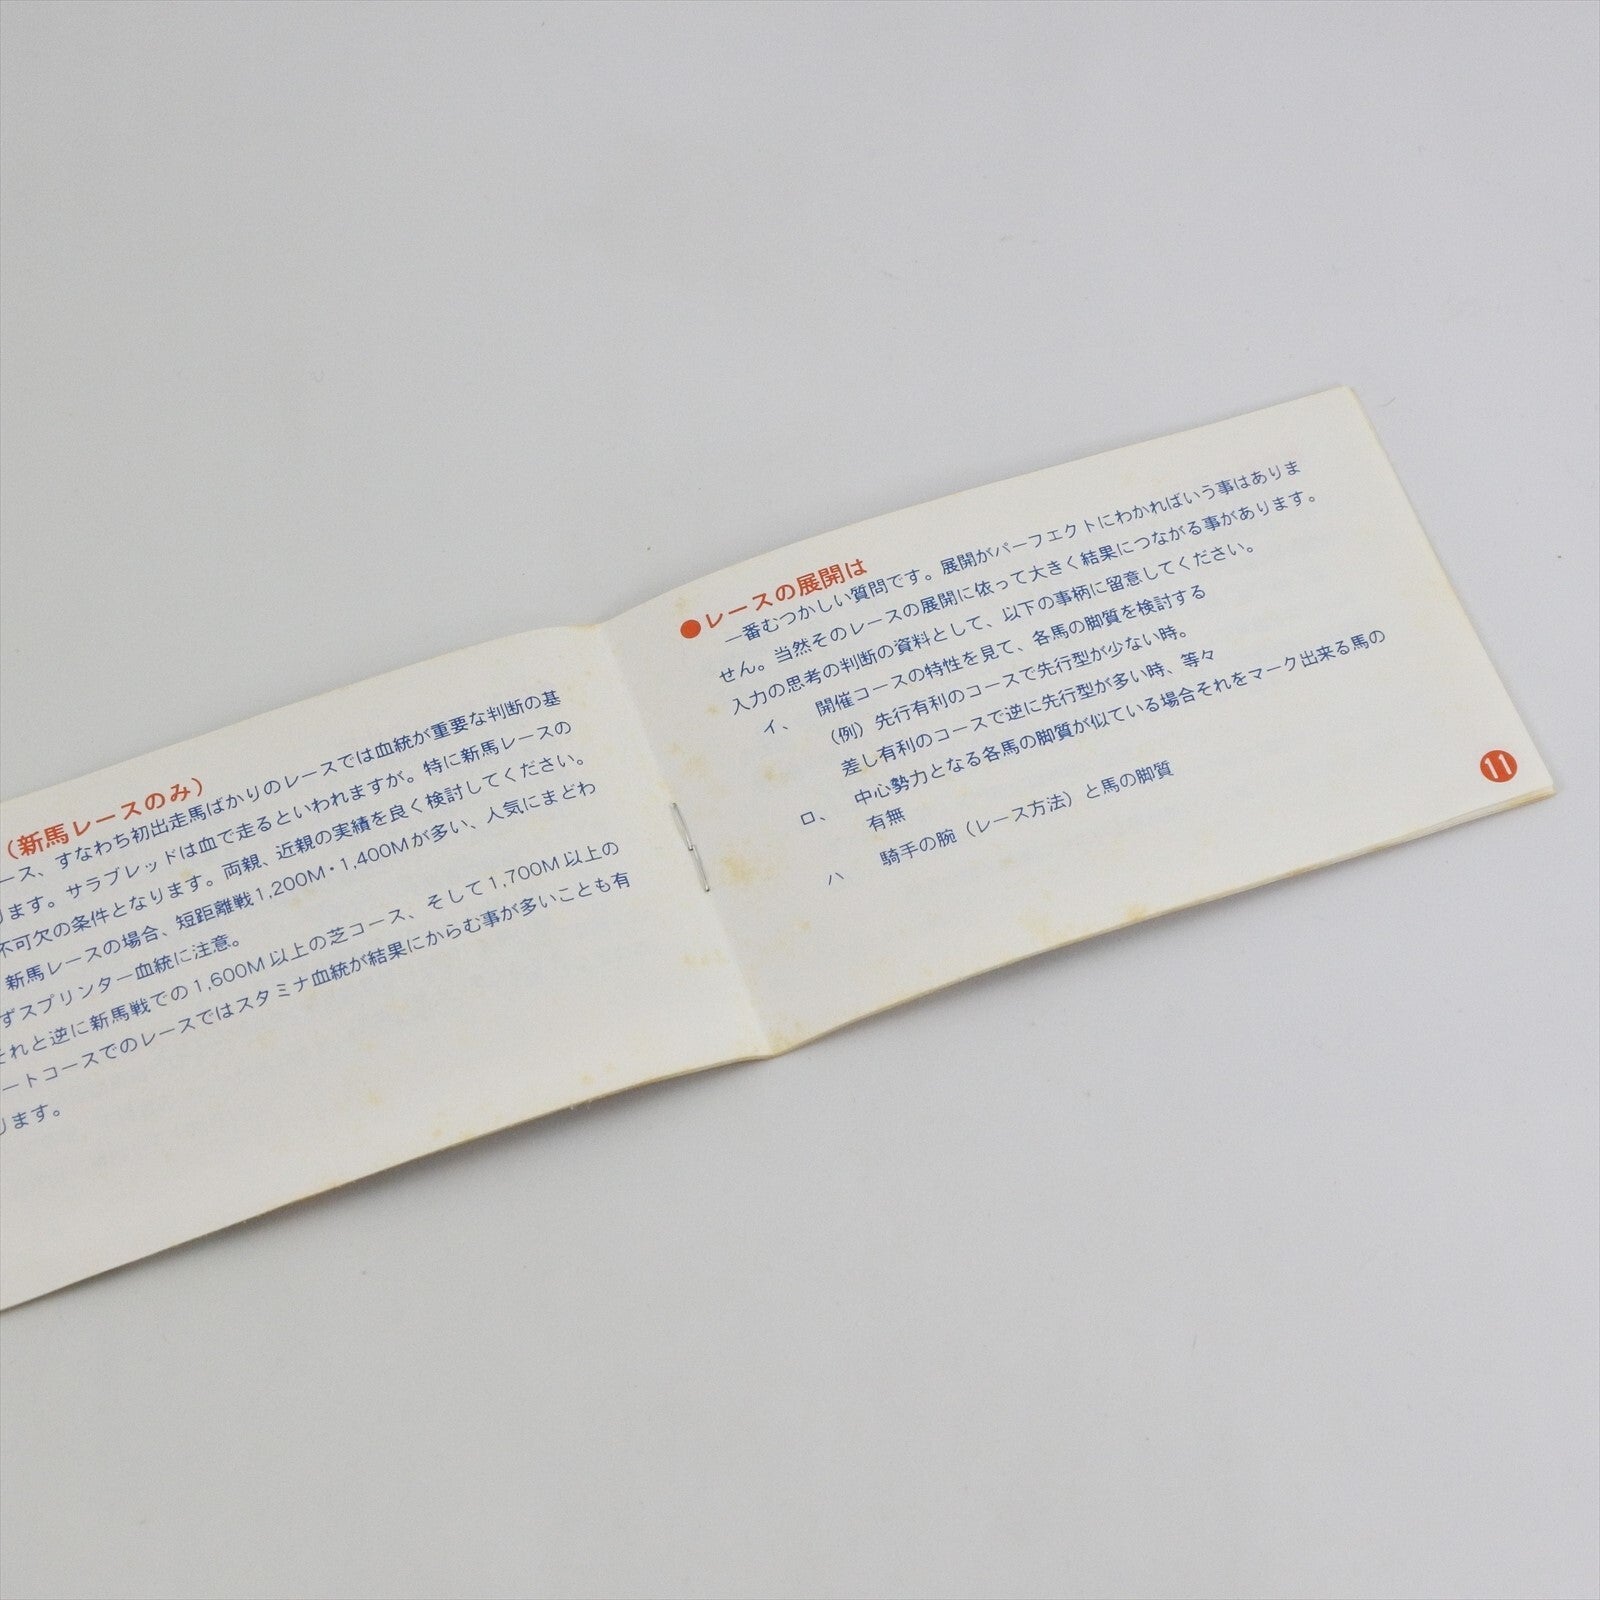 （新馬レースのみ）
ース、すなわち初出走馬ばかりのレースでは血統が重要な判断の基
ります。サラブレッドは血で走るといわれますが。特に新馬レースの
不可欠の条件となります。両親、近親の実績を良く検討してください。
新馬レースの場合、短距離戦1,200M・1,400Mが多い、人気にまどわ
ずスプリンター血統に注意。
それと逆に新馬戦での1,600M以上の芝コース、そして1,700M以上の
ートコースでのレースではスタミナ血統が結果にからむ事が多いことも有
ります。
●レースの展開は
一番むつかしい質問です。展開がパーフェクトにわかればいう事はありま
せん。当然そのレースの展開に依って大きく結果につながる事があります。
入力の思考の判断の資料として、以下の事柄に留意してください。
イ、 開催コースの特性を見て、各馬の脚質を検討する
（例）先行有利のコースで先行型が少ない時。
差し有利のコースで逆に先行型が多い時、等々
ロ、 中心勢力となる各馬の脚質が似ている場合それをマーク出来る馬の
有無
ハ 騎手の腕（レース方法）と馬の脚質
11